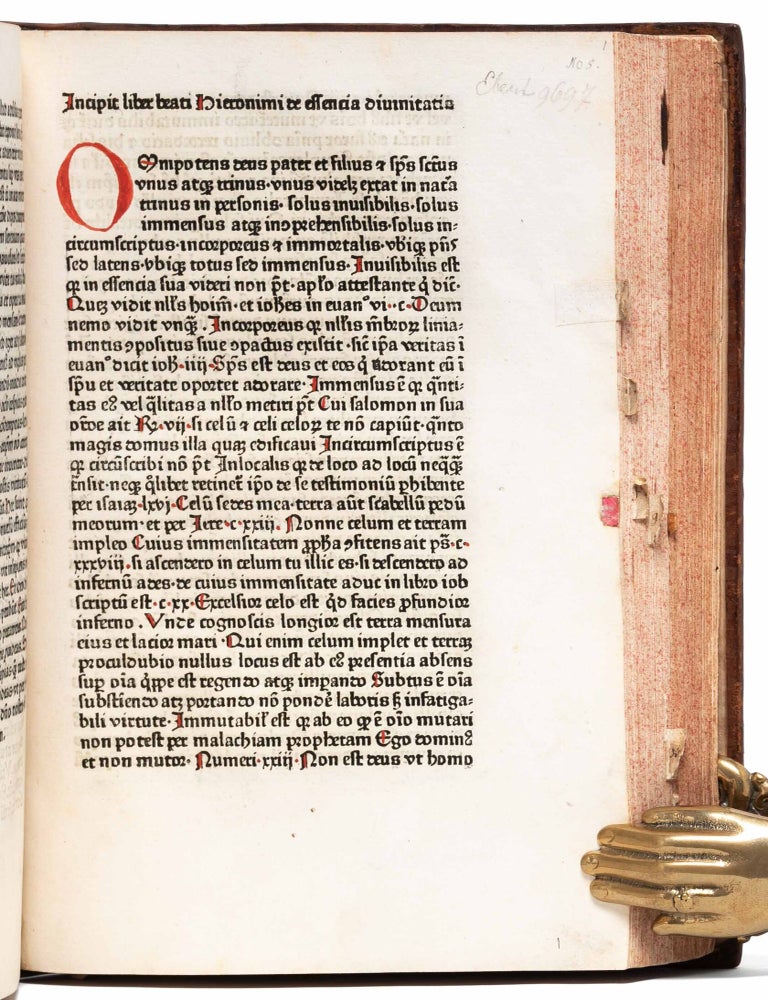 1
No 5.
Ebert 9697
Incipit liber beati Hieronimi de essencia diuinitatis
OMnipotens deus pater et filius ⁊ sp̄s sc̄tus
vnus atqꝫ trinus·vnus videlꝫ extat in nat̄a
trinus in personis· solus inuisibilis·solus
immensus atqꝫ inꝯprehensibilis·solus in⸗
circumscriptus·incorporeus ⁊ immortalis·vbiqꝫ pn̄s
sed latens·vbiqꝫ totus sed immensus·Inuisibilis est
qꝛ in essencia sua videri non pt̄·apl̄o attestante q̇ dic̄·
Queꝫ vidit nll̄s hoim̄·et ioh̄es in euan°vi··c·Deum
nemo vidit vnq̄ꝫ.Incorporeus qꝛ nll̄is mb̄roꝝ linia⸗
mentis ꝯpositus siue ꝯpactus existit·sic̄ ip̄a veritas ī
euan°dicit ioh̄·iiij·Sp̄s est deus et eos q̇ adorant eū ī
sp̄u et veritate oportet adorare·Immensus ē qꝛ q̄nti⸗
tas eꝰ vel q̄litas a nll̄o metiri pt̄ Cui salomon in sua
or̄oe ait Rꝝ·vij·si celū ⁊ celi celoꝝ te nō capiūt·q̄nto
magis domus illa quaꝫ edificaui Incircumscriptus ē
qꝛ circūscribi nō pt̄ Inlocalis qꝛ de loco ad locū neq̄qꝫ̄
tn̄sit·neqꝫ q̄libet retinet̄ ip̄o de se testimoniū ꝑhibente
per isaiaꝫ·lxvi·Celū sedes mea·terra aūt scabellū pedū
meorum·et per Iere·c·xxiij· Nonne celum et terram
impleo Cuius immensitatem ꝓph̄a ꝯfitens ait ps̄·c·
xxxviij·si ascendero in celum tu illic es·si descendero ad
infernū ades·de cuius immensitate aduc in libro iob
scriptū est·c·xx·Excelsior celo est q̇d facies ꝓfundior
inferno .Vnde cognoscis longior est terra mensura
eius et lacior mari ·Qui enim celum implet et terraꝫ
proculdubio nullus locus est ab eꝰ presentia absens
sup̄ oīa q̇ppe est regendo atqꝫ imꝑando Subtus ē oīa
subſtiendo atꝫ portando nō pondē laboris ꝫ infatiga⸗
bili virtute·Immutabil̄ est qꝛ ab eo qꝛ ē oīo mutari
non potest per malachiam prophetam Ego dominꝰ
et non mutor· Numeri·xxiij·Non est deus vt homo
1